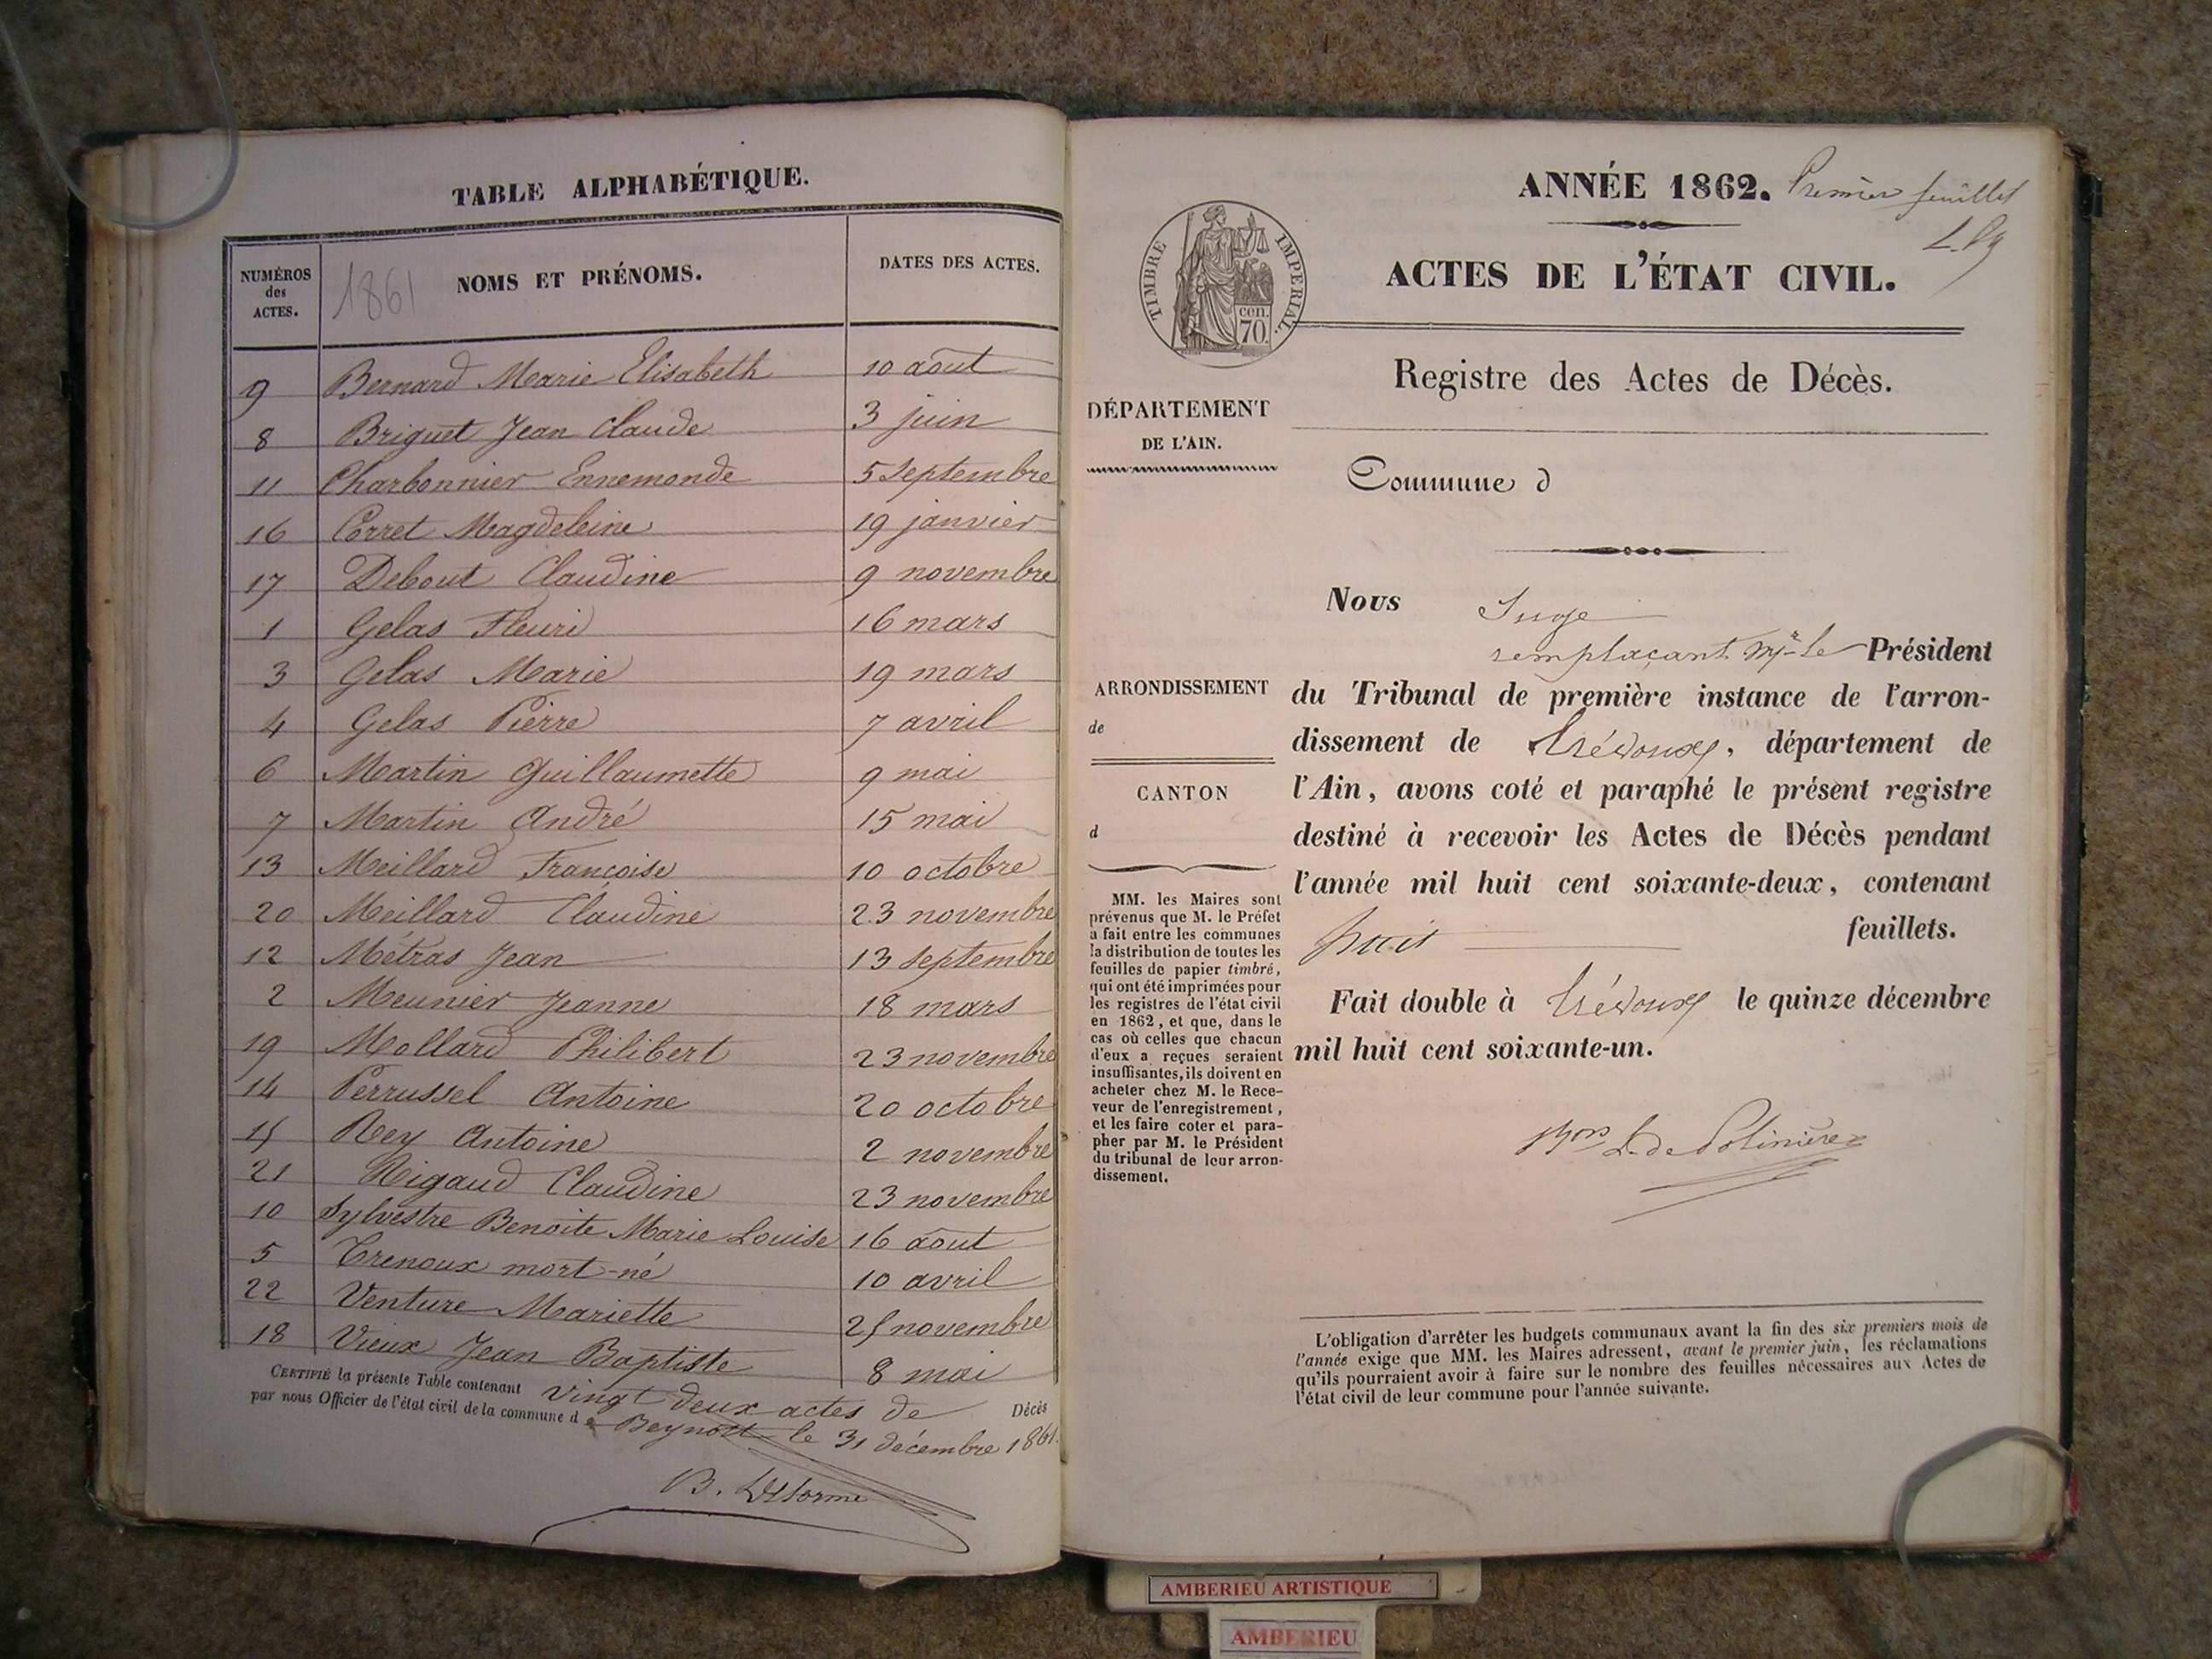 TABLE ALPHABÉTIQUE.
NUMÉROS des ACTES. 1861 NOMS ET PRÉNOMS. DATES DES ACTES.
9 Bernard Marie Elisabeth 10 août
8 Briguet Jean Claude 3 juin
11 Charbonnier Ennemonde 5 septembre
16 Corret Magdeleine 19 janvier
17 Debout Claudine 9 novembre
1 Gelas Fleuri 16 mars
3 Gelas Marie 19 mars
4 Gelas Pierre 7 avril
6 Martin Guillaumette 9 mai
7 Martin André 15 mai
13 Meillard Françoise 10 octobre
20 Meillard Claudine 23 novembre
12 Métras Jean 13 septembre
2 Meunier Jeanne 18 mars
19 Mollard Philibert 23 novembre
14 Perrussel Antoine 20 octobre
15 Rey Antoine 2 novembre
21 Rigaud Claudine 23 novembre
10 Sylvestre Benoite Marie Louise 16 août
5 Trenoux mort-né 10 avril
22 Venture Mariette 25 novembre
18 Vieux Jean Baptiste 8 mai
CERTIFIÉ la présente Table contenant vingt deux actes de Décès
par nous Officier de l'état civil de la commune de Beynost le 31 décembre 1861.
B. Delorme
ANNÉE 1862. Premier feuillet
ACTES DE L'ÉTAT CIVIL.
TIMBRE IMPERIAL.
cen.
70.
Registre des Actes de Décès.
DÉPARTEMENT
DE L'AIN.
Commune d
ARRONDISSEMENT
de
CANTON
d
MM. les Maires sont
prévenus que M. le Préfet
a fait entre les communes
la distribution de toutes les
feuilles de papier timbré,
qui ont été imprimées pour
les registres de l'état civil
en 1862, et que, dans le
cas où celles que chacun
d'eux a reçues seraient
insuffisantes, ils doivent en
acheter chez M. le Rece-
veur de l'enregistrement,
et les faire coter et para-
pher par M. le Président
du tribunal de leur arron-
dissement.
Nous Juge
remplaçant Mr le Président
du Tribunal de première instance de l'arron-
dissement de Trévoux, département de
l'Ain, avons coté et paraphé le présent registre
destiné à recevoir les Actes de Décès pendant
l'année mil huit cent soixante-deux, contenant
huit feuillets.
Fait double à Trévoux le quinze décembre
mil huit cent soixante-un.
L. de Polinière
L'obligation d'arrêter les budgets communaux avant la fin des six premiers mois de
l'année exige que MM. les Maires adressent, avant le premier juin, les réclamations
qu'ils pourraient avoir à faire sur le nombre des feuilles nécessaires aux Actes de
l'état civil de leur commune pour l'année suivante.
AMBERIEU ARTISTIQUE
AMBERIEU